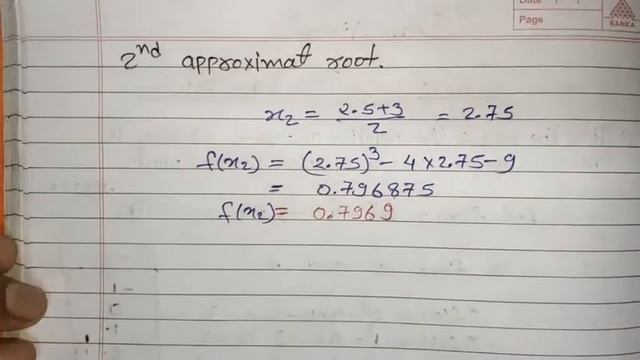 Date / /
Page
RANKA
2nd approximat root.
x₂ = (2.5+3)/2 = 2.75
f(x₂) = (2.75)³ - 4×2.75-9
= 0.796875
f(x₂)= 0.7969